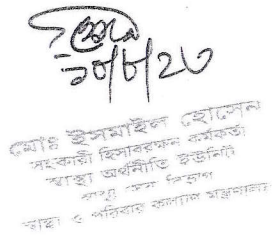 ১৮/৮/২৩
মোঃ ইসমাইল হোসেন
সহকারী হিসাবরক্ষন কর্মকর্তা
স্বাস্থ্য অর্থনীতি ইউনিট
স্বাস্থ্য সেবা বিভাগ
স্বাস্থ্য ও পরিবার কল্যাণ মন্ত্রণালয়